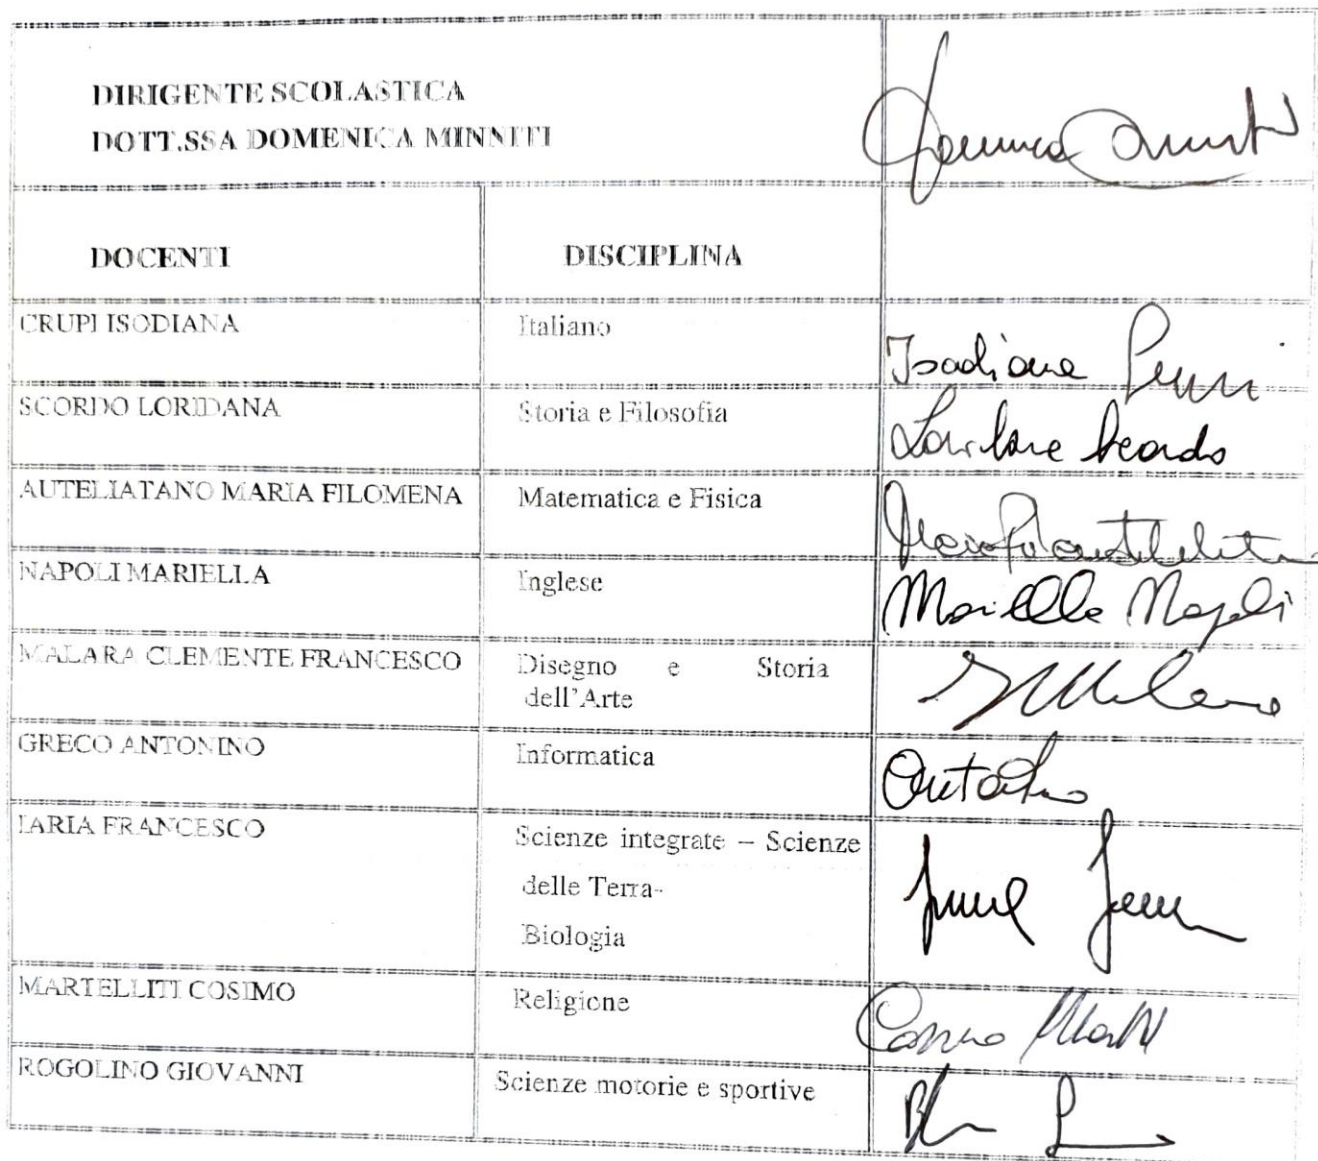 DIRIGENTE SCOLASTICA
DOTT.SSA DOMENICA MINNITI
DOCENTI DISCIPLINA
CRUPI ISODIANA Italiano
Isodiana Crupi
SCORDO LORIDANA Storia e Filosofia
Scordo
AUTELIATANO MARIA FILOMENA Matematica e Fisica
NAPOLI MARIELLA Inglese
Mariella Napoli
MALARA CLEMENTE FRANCESCO Disegno e Storia
dell'Arte
GRECO ANTONINO Informatica
IARIA FRANCESCO Scienze integrate – Scienze
delle Terra-
Biologia
MARTELLITI COSIMO Religione
ROGOLINO GIOVANNI Scienze motorie e sportive